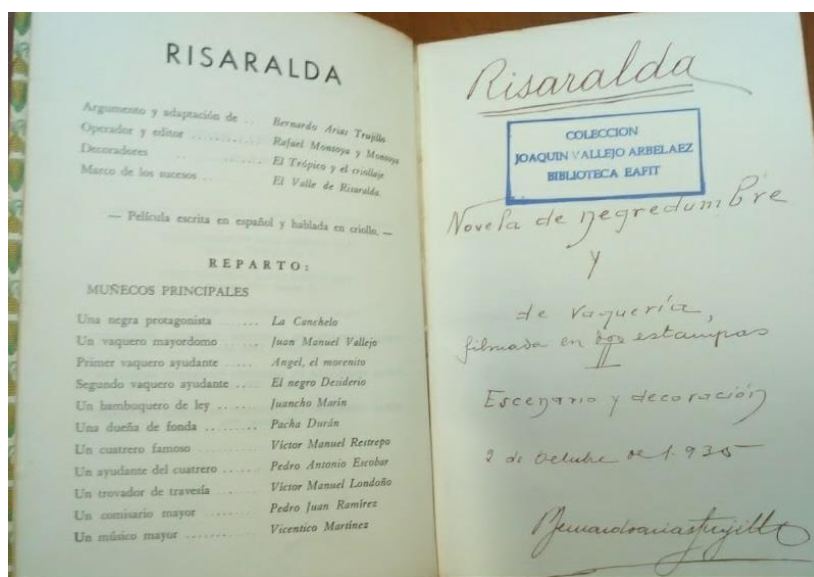 RISARALDA
Argumento y adaptación de .. Bernardo Arias Trujillo
Operador y editor ........... Rafael Montoya y Montoya
Decoradores .. ........ El Trópico y el criollaje
Marco de los sucesos .. El Valle de Risaralda.
— Película escrita en español y hablada en criollo. —
REPARTO:
MUÑECOS PRINCIPALES
Una negra protagonista ....... La Canchelo
Un vaquero mayordomo ....... Juan Manuel Vallejo
Primer vaquero ayudante ..... Angel, el morenito
Segundo vaquero ayudante .. El negro Desiderio
Un bamboquero de ley ...... Juancho Marín
Una dueña de fonda ......... Pacha Durán
Un cuatrero famoso ........ Víctor Manuel Restrepo
Un ayudante del cuatrero ...... Pedro Antonio Escobar
Un trovador de travesía ....... Víctor Manuel Londoño
Un comisario mayor ......... Pedro Juan Ramírez
Un músico mayor .......... Vicentico Martínez
Risaralda
COLECCION
JOAQUIN VALLEJO ARBELAEZ
BIBLIOTECA EAFIT
Novela de negredumbre
y
de vaquería,
filmada en dos estampas
II
Escenario y decoración
2 de Octubre de 1.935
Bernardo Arias Trujillo